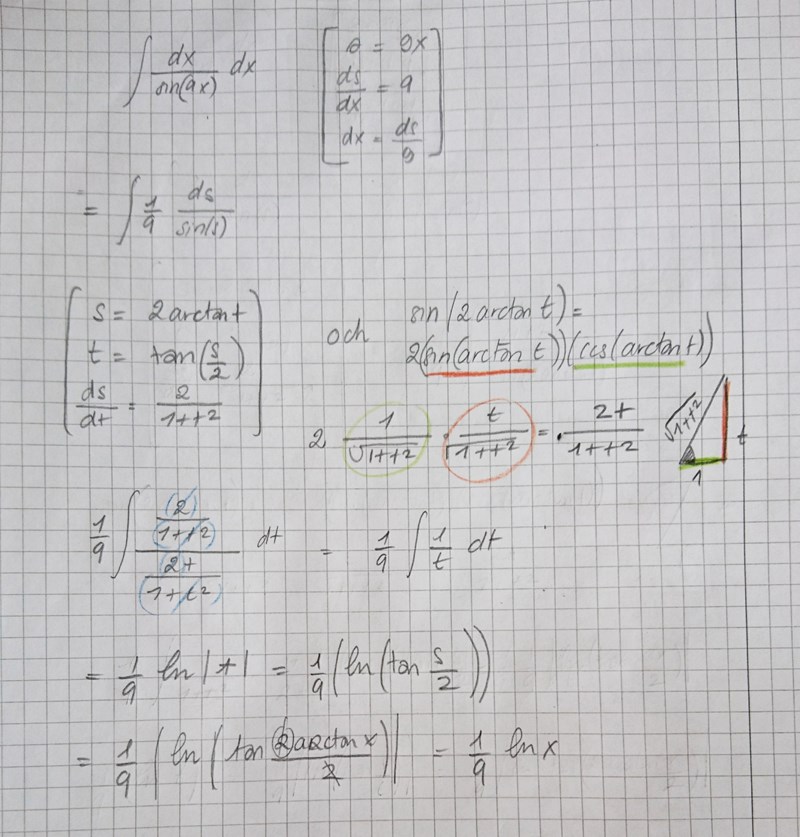 ∫ dx/sin(9x) dx [s = 9x
ds/dx = 9
dx = ds/9]
= ∫ 1/9 ds/sin(s)
[s = 2 arctan t
t = tan(s/2)
ds/dt = 2/(1+t²)]
och
sin(2 arctan t) =
2(sin(arctan t))(cos(arctan t))
2 1/√(1+t²) · t/√(1+t²) = 2t/(1+t²)
√(1+t²) t
1
1/9 ∫ ((2)/(1+t²))/((2t)/(1+t²)) dt = 1/9 ∫ 1/t dt
= 1/9 ln|t| = 1/9 (ln(tan s/2))
= 1/9 |ln(tan 2arctan x/2)| = 1/9 ln x